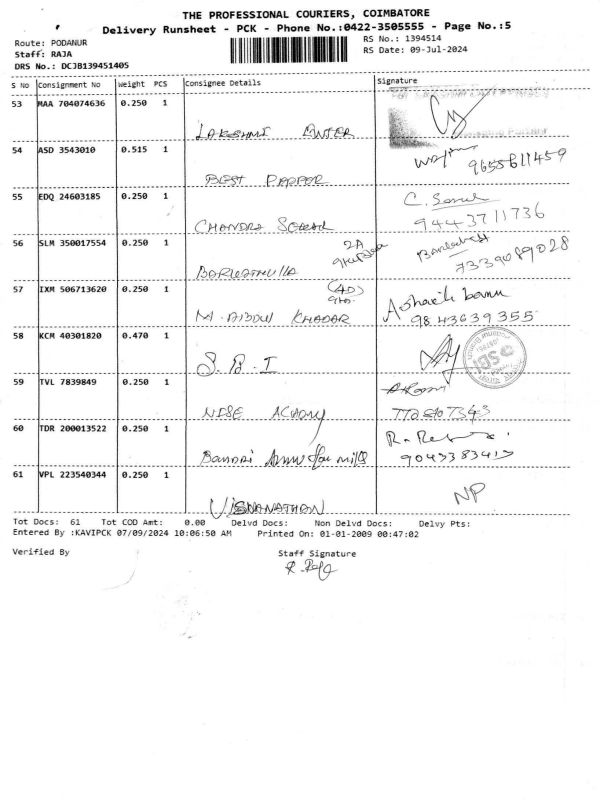 THE PROFESSIONAL COURIERS, COIMBATORE
Delivery Runsheet - PCK - Phone No.:0422-3505555 - Page No.:5
Route: PODANUR
Staff: RAJA
DRS No.: DCJB139451405
RS No.: 1394514
RS Date: 09-Jul-2024
S No Consignment No Weight PCS Consignee Details Signature
53 MAA 704074636 0.250 1 LAKSHMI
54 ASD 3543010 0.515 1 BEST PAPPER 9655611459
55 EDQ 24603185 0.250 1 CHANDRA SEKAR C. 9443711736
56 SLM 350017554 0.250 1 2A 7339089028
57 IXM 506713620 0.250 1 M. ABDUL KHADAR (4D) 9843639355
58 KCM 40301820 0.470 1 S. B. I SBI
59 TVL 7839849 0.250 1
60 TDR 200013522 0.250 1 R.
61 VPL 223540344 0.250 1 VISWANATHAN NP
Tot Docs: 61 Tot COD Amt: 0.00 Delvd Docs: Non Delvd Docs: Delvy Pts:
Entered By :KAVIPCK 07/09/2024 10:06:50 AM Printed On: 01-01-2009 00:47:02
Verified By Staff Signature